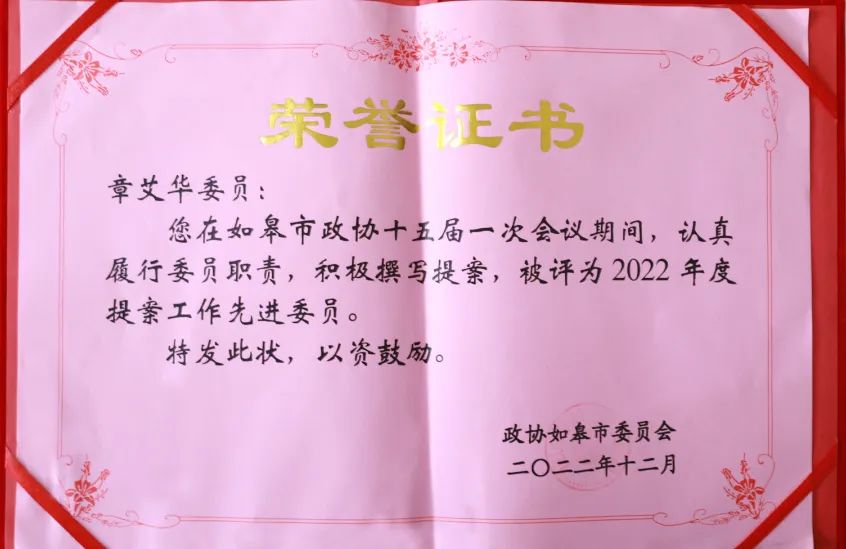 荣誉证书
章艾华委员：
您在如皋市政协十五届一次会议期间，认真
履行委员职责，积极撰写提案，被评为2022年度
提案工作先进委员。
特发此状，以资鼓励。
政协如皋市委员会
二〇二二年十二月